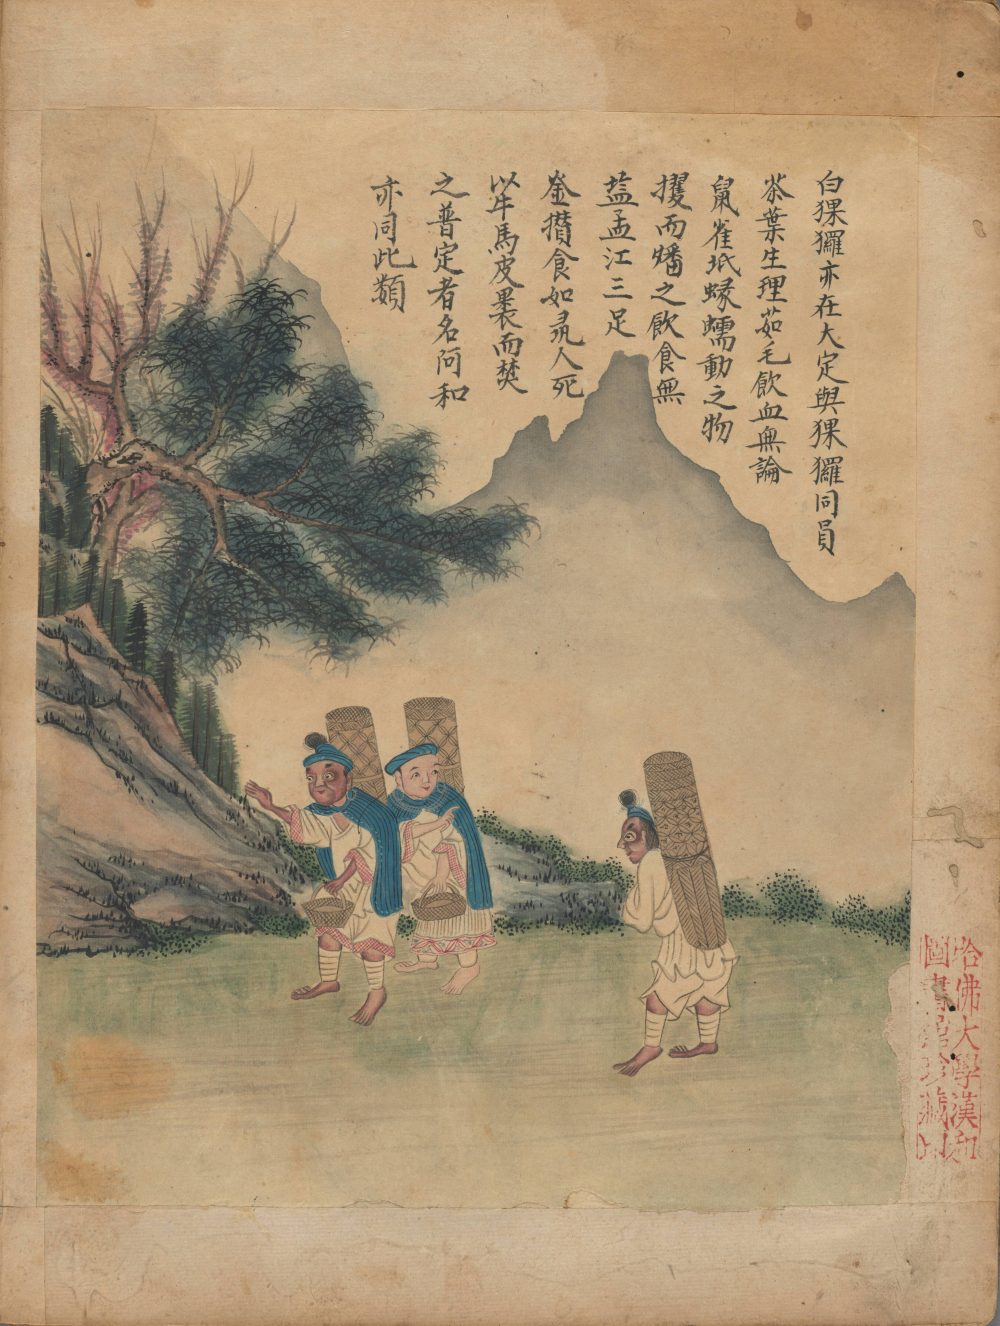 白猓玀亦在大定與猓玀同員
茶葉生理茹毛飲血無論
鼠雀坻蝝蠕動之物
攫而燔之飲食無
盐盂江三足
釜攅食如彘人死
以牛馬皮裹而焚
之普定者名阿和
亦同此類
哈佛大學漢和
圖書館珍藏印